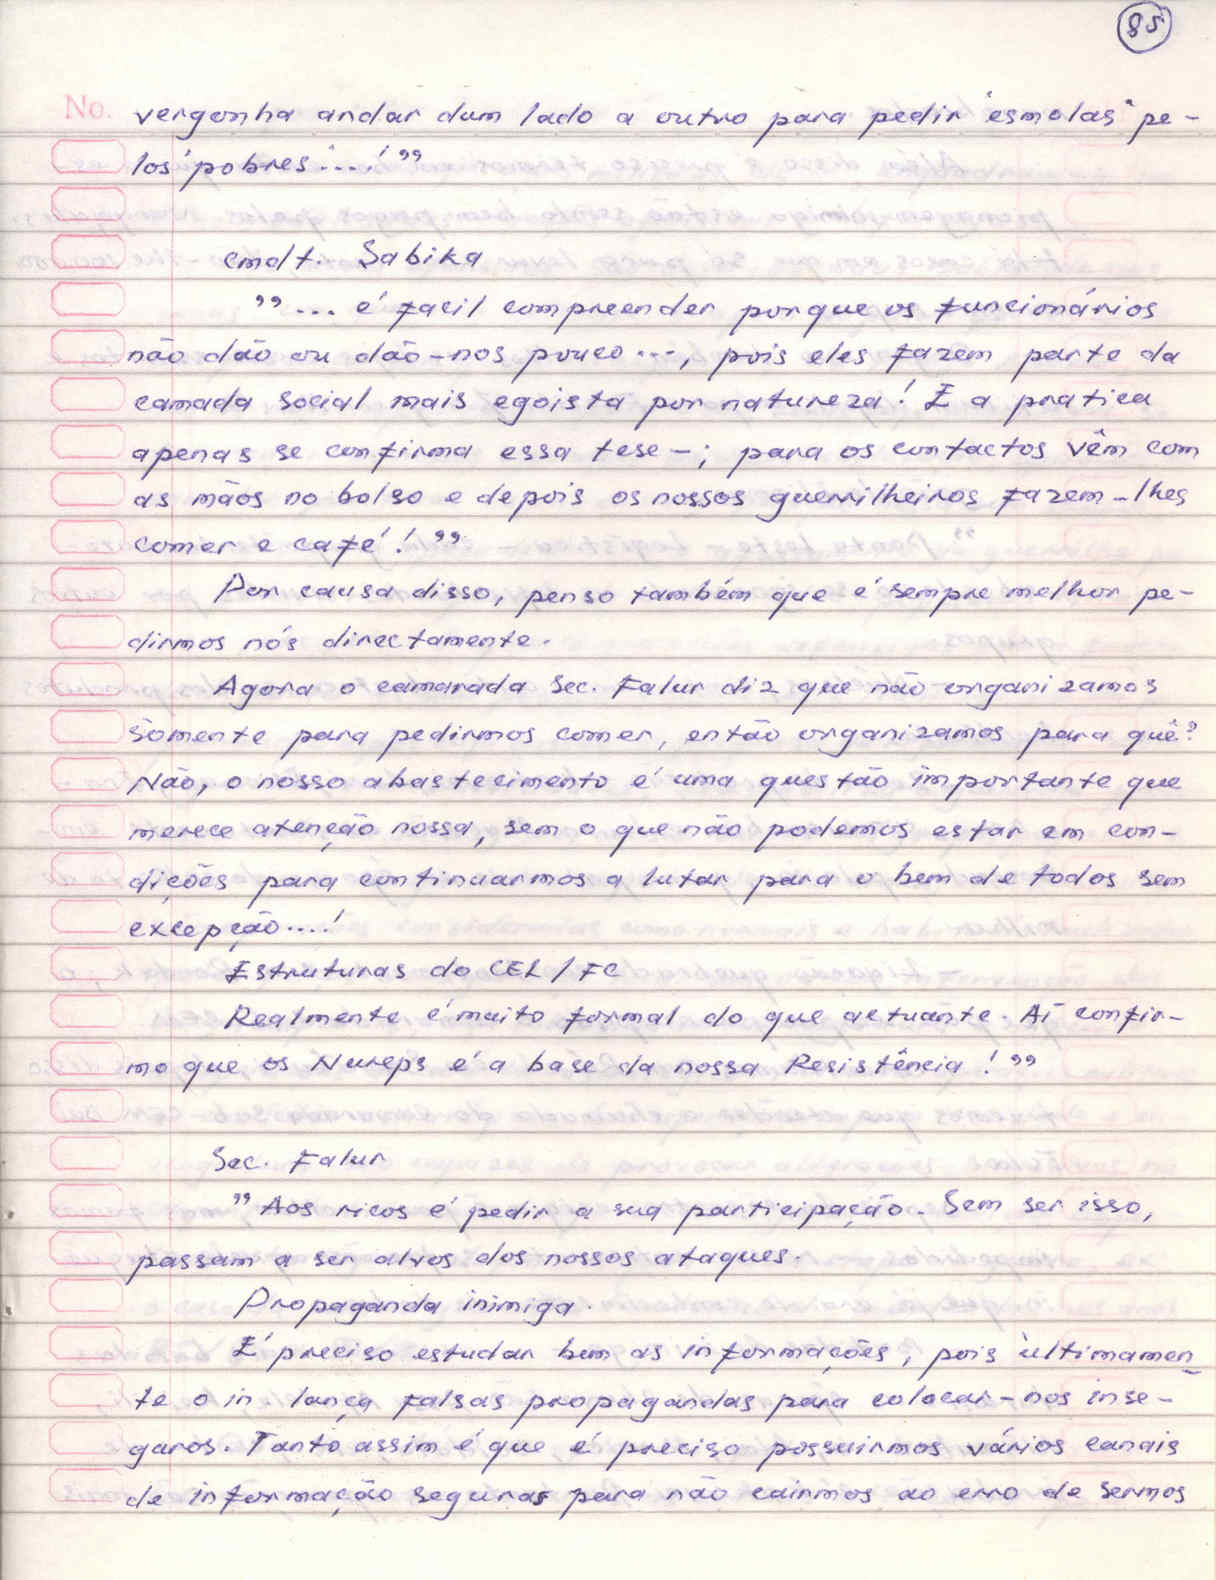 85
No. vergonha andar dum lado a outro para pedir "esmolas" pe-
los "pobres"...!”
cmdt. Sabika
”... é facil compreender porque os funcionários
não dão ou dão-nos pouco..., pois eles fazem parte da
camada social mais egoista por natureza! E a pratica
apenas se confirma essa tese-; para os contactos vêm com
as mãos no bolso e depois os nossos guerrilheiros fazem-lhes
comer e café! ”
Por causa disso, penso também que é sempre melhor pe-
dirmos nós directamente.
Agora o camarada Sec. Falur diz que não organizamos
sòmente para pedirmos comer, então organizamos para quê?
Não, o nosso abastecimento é uma questão importante que
merece atenção nossa, sem o que não podemos estar em con-
dições para continuarmos a lutar para o bem de todos sem
excepção...!
Estruturas do CEL/FC
Realmente é muito formal do que actuante. Aí confir-
mo que os Nureps é a base da nossa Resistência! ”
Sec. Falur
” Aos ricos é pedir a sua participação. Sem ser isso,
passam a ser alvos dos nossos ataques.
Propaganda inimiga.
É preciso estudar bem as informações, pois ùltimamen-
te o in. lança falsas propagandas para colocar-nos inse-
guros. Tanto assim é que é preciso possuirmos vários canais
de informação seguras para não cairmos ao erro de sermos